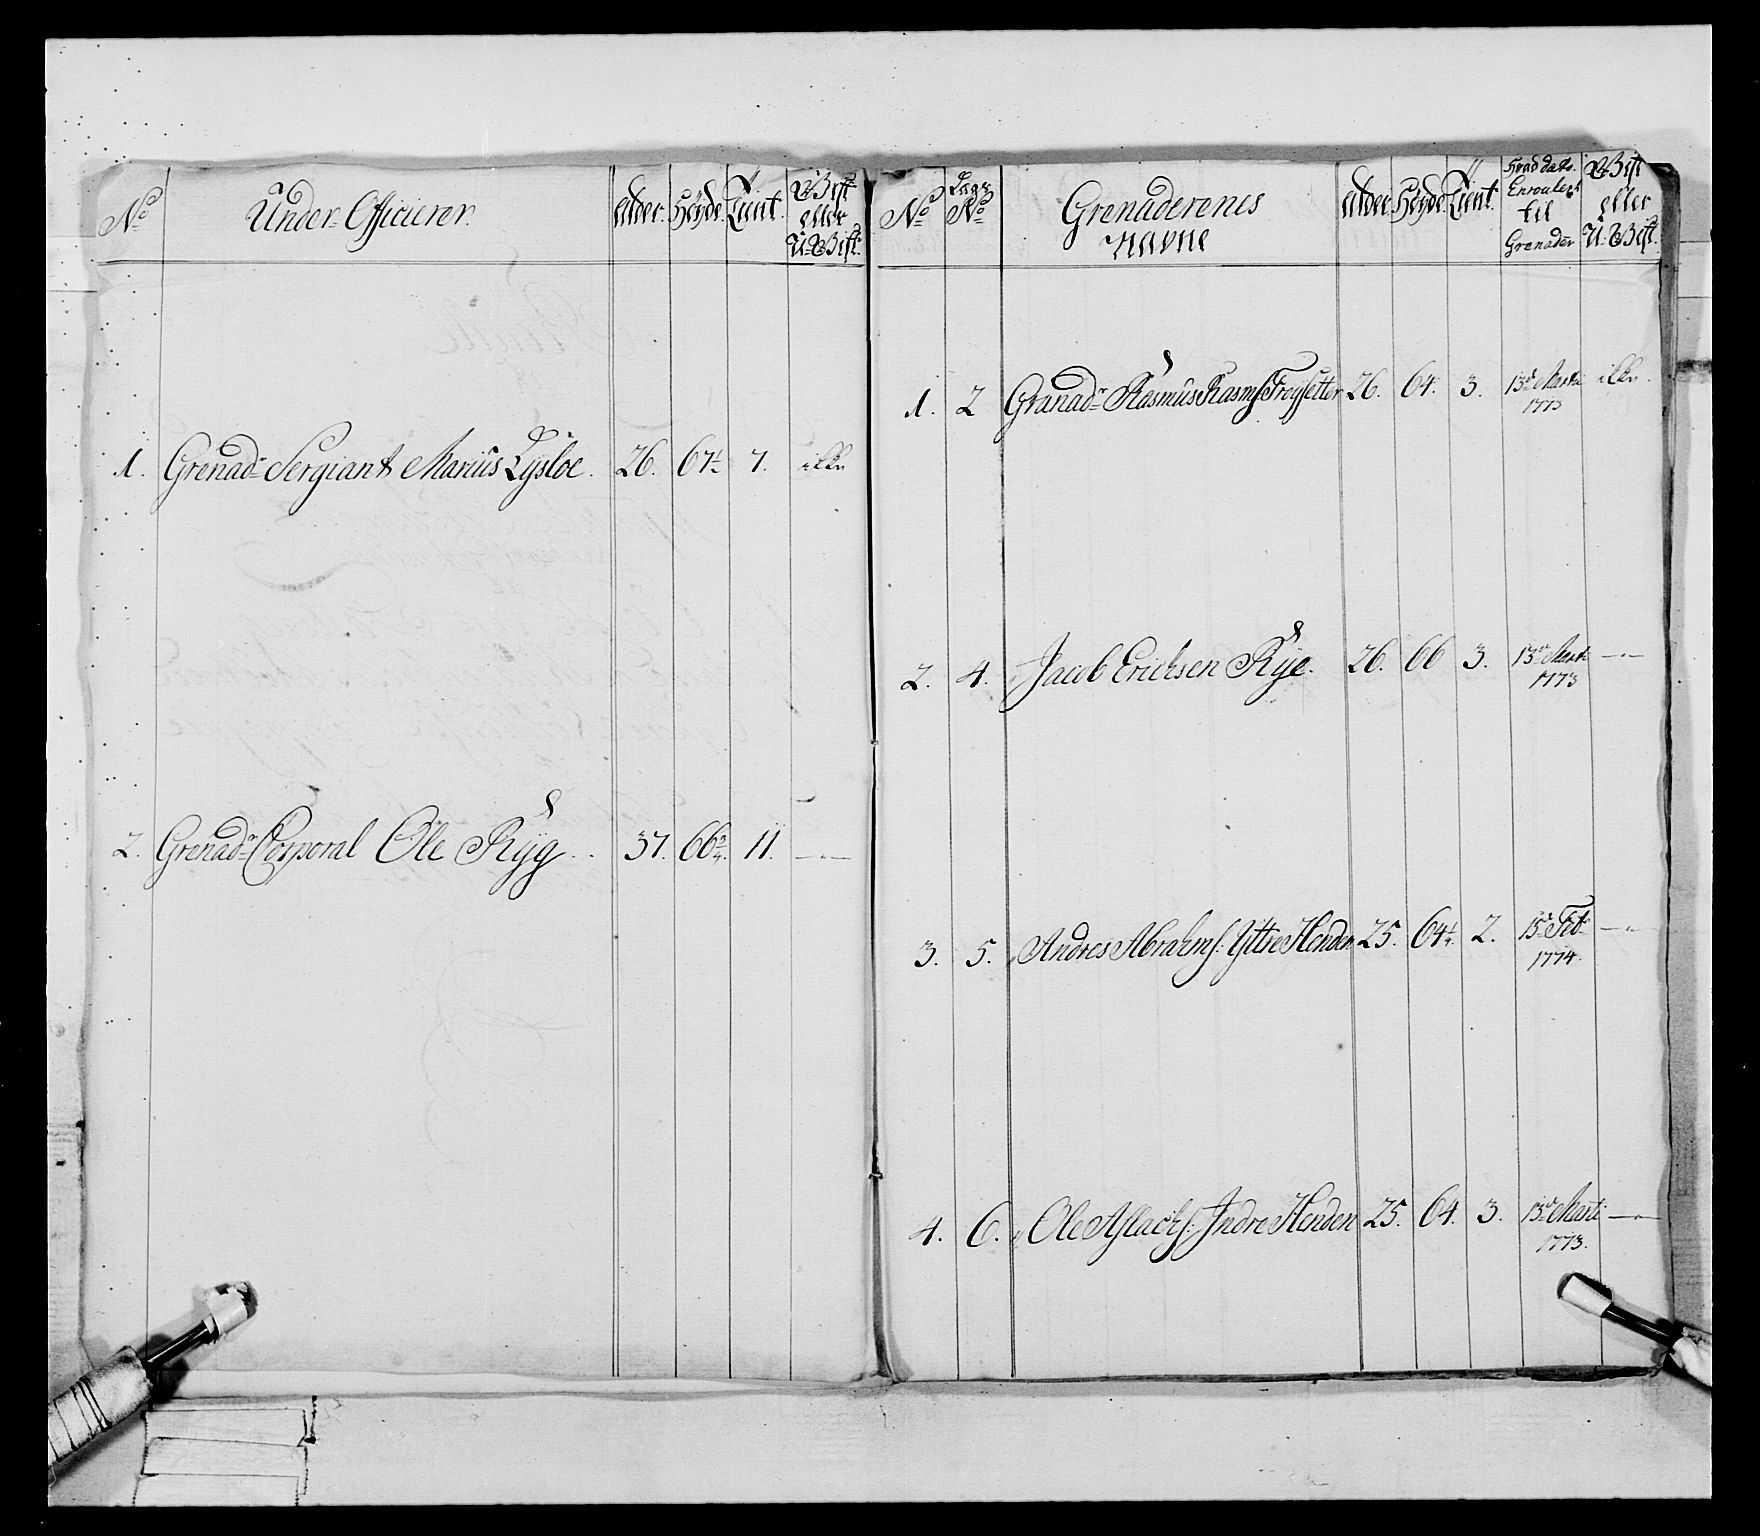 No
Under-Officierer.
Alder.
Høyde
Tient.
Gift
eller
U-Gift.
1. Grenadr Sergiant Marius Lysloe. 26. 67 1/2 7. ikke
2. Grenadr Corporal Ole Ryg .. 37. 66 3/4. 11. —"—
No
Laegs
No
Grenaderenes
Navne
Alder
Høyde
Tient.
Hvad dato
Enroulert
til
Grenader
Gift
eller
U-Gift.
1. 2 Granadr Rasmus Rasms: Frøysetter 26. 64. 3. 13d Marti ikke.
1773
2. 4. " Jacob Erichsen Rye. 26. 66 3. 13de Marti —"—
1773
3. 5. " Andres Abrahms: Yttre Henden 25. 64 1/4. 2. 15de Feb: —"—
1774.
4. 6. " Ole Aslachs: Indre Henden 25. 64. 3. 13de Marti —"—
1773.